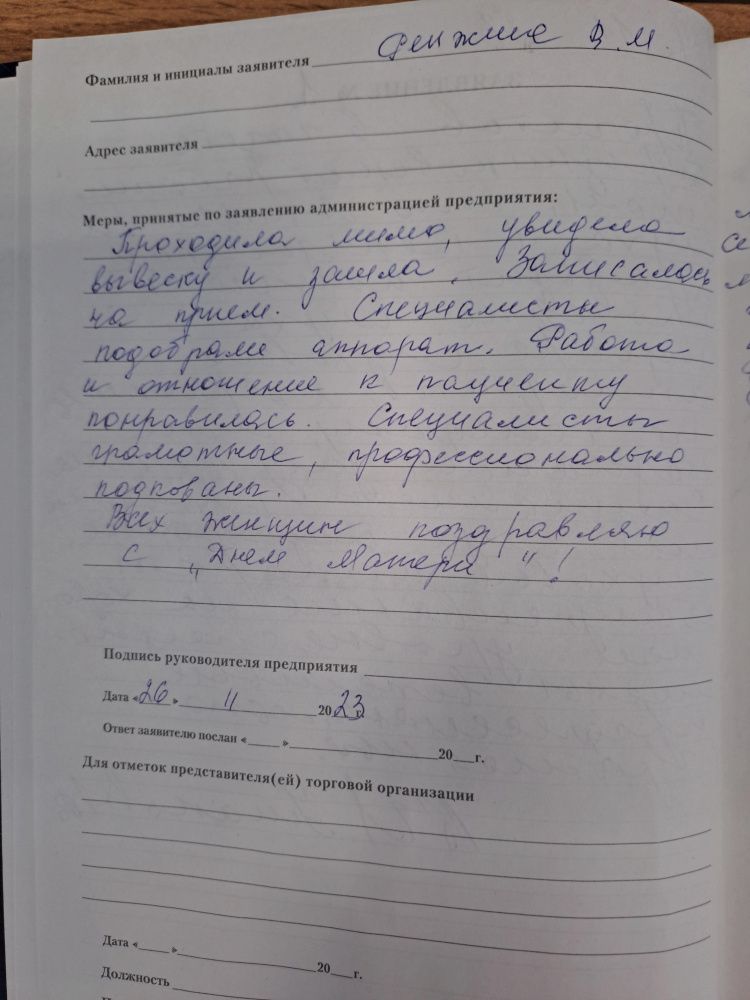 Фамилия и инициалы заявителя В. М.
Адрес заявителя
Меры, принятые по заявлению администрацией предприятия:
Проходила мимо, увидела
вывеску и зашла. Записалась
на прием. Специалисты
подобрали аппарат. Работа
и отношение к пациенту
понравилась. Специалисты
грамотные, профессионально
подкованы.
Всех женщин поздравляю
с „Днем Матери"!
Подпись руководителя предприятия
Дата «26» 11 2023 г.
Ответ заявителю послан «___» 20__г.
Для отметок представителя(ей) торговой организации
Дата «___» 20__г.
Должность